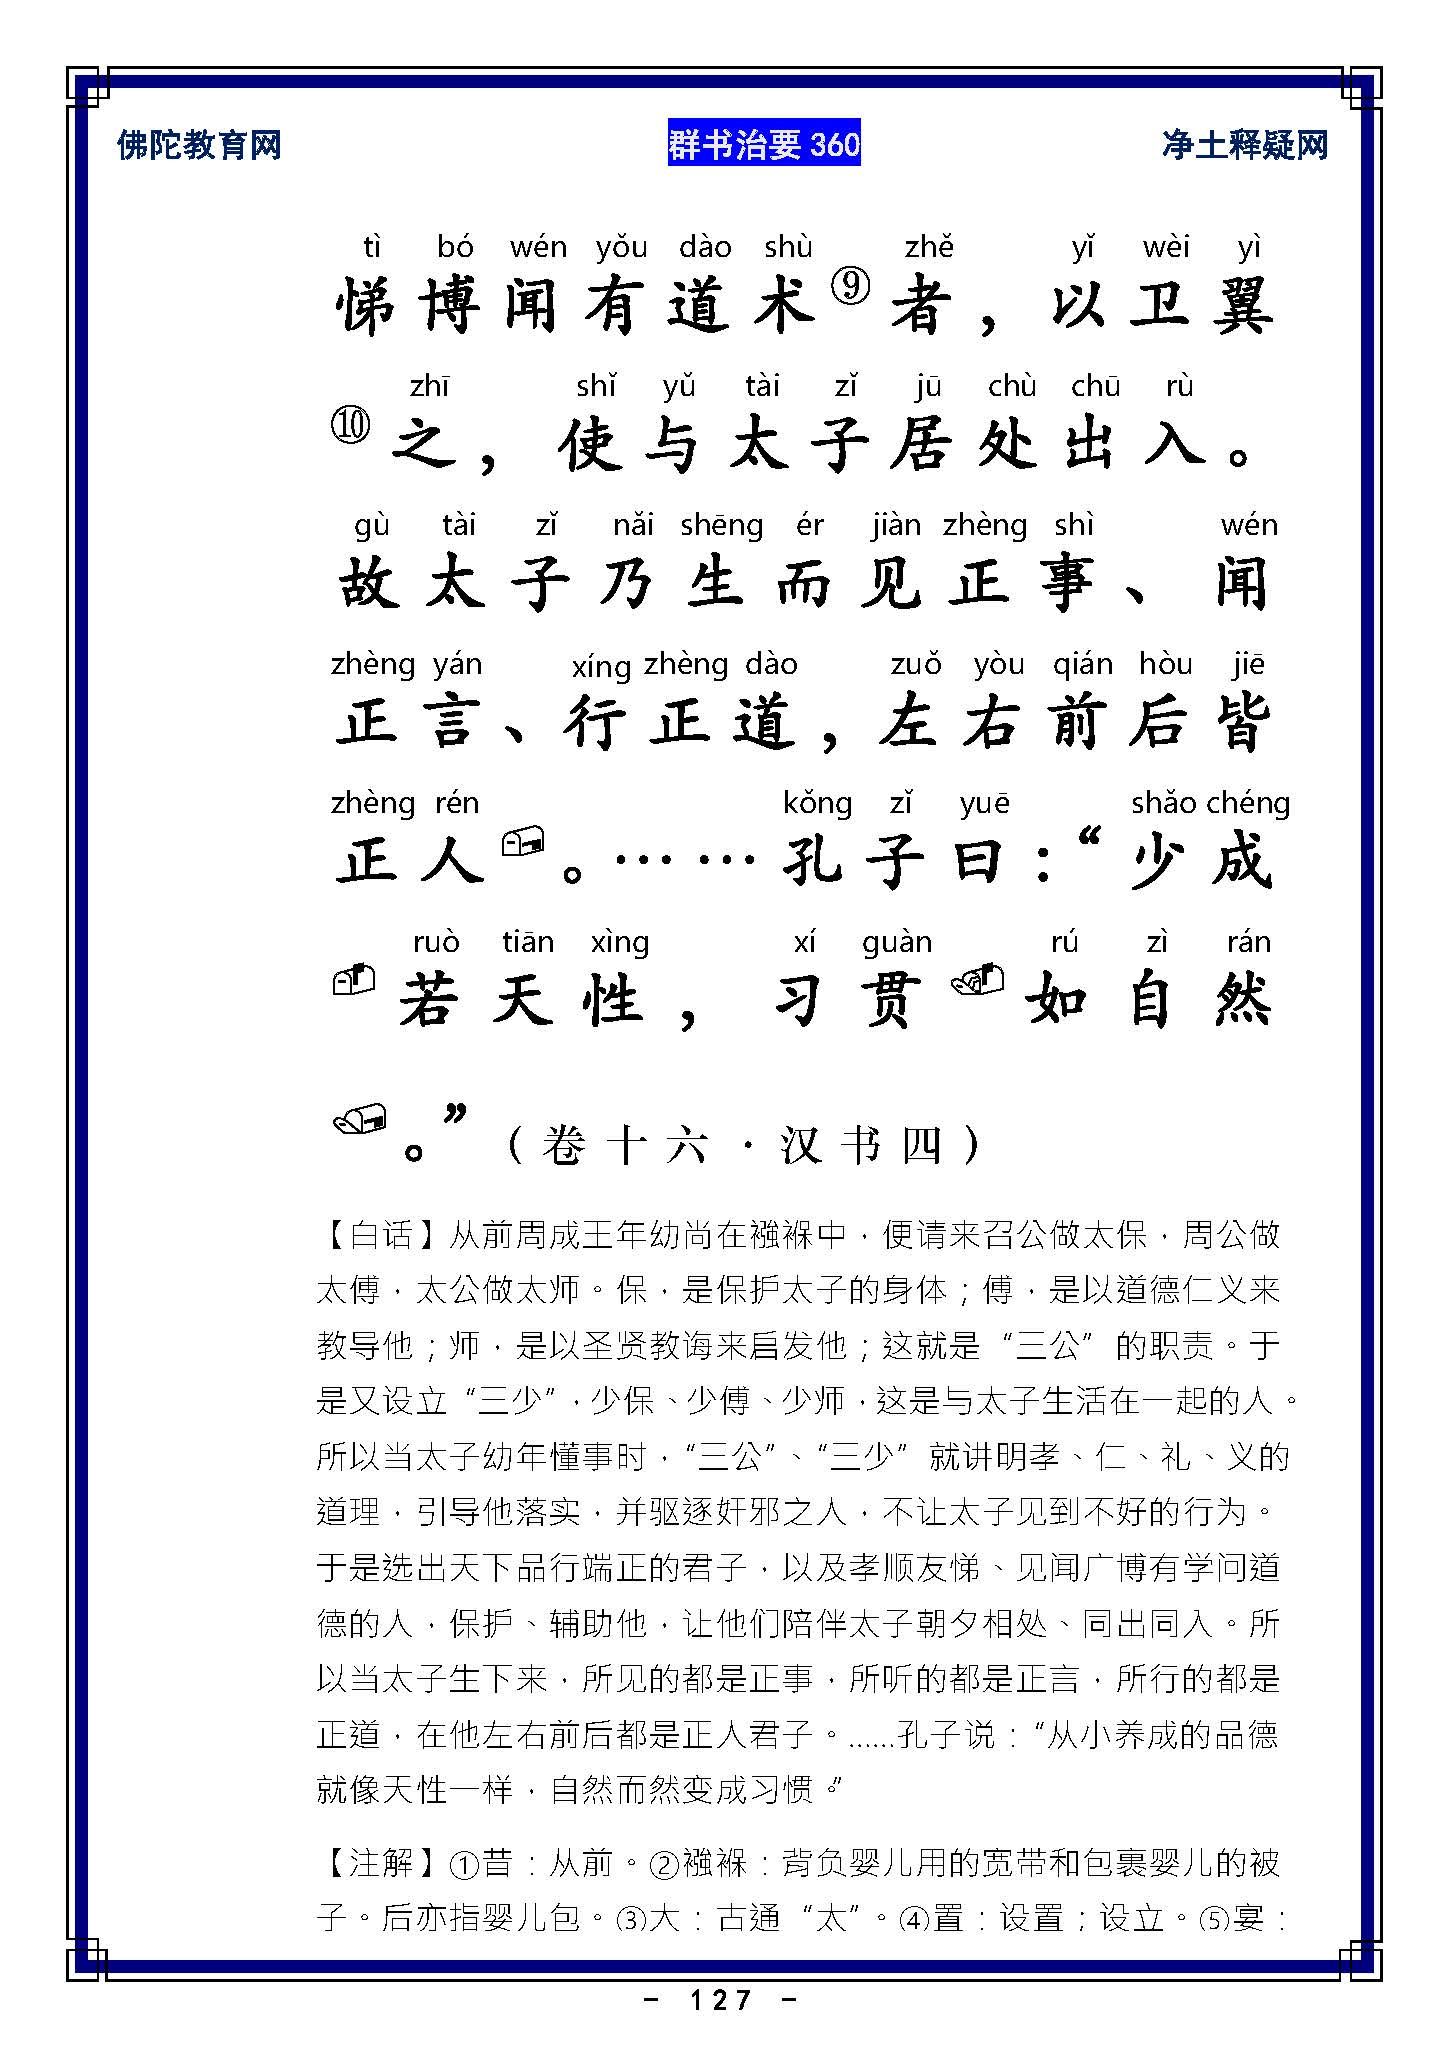 佛陀教育网 群书治要 360 净土释疑网
tì bó wén yǒu dào shù zhě yǐ wèi yì
悌博闻有道术⑨者，以卫翼
zhī shǐ yǔ tài zǐ jū chù chū rù
⑩之，使与太子居处出入。
gù tài zǐ nǎi shēng ér jiàn zhèng shì wén
故太子乃生而见正事、闻
zhèng yán xíng zhèng dào zuǒ yòu qián hòu jiē
正言、行正道，左右前后皆
zhèng rén kǒng zǐ yuē shǎo chéng
正人。……孔子曰：“少成
ruò tiān xìng xí guàn rú zì rán
若天性，习贯如自然
。”（卷十六·汉书四）
【白话】从前周成王年幼尚在襁褓中，便请来召公做太保，周公做
太傅，太公做太师。保，是保护太子的身体；傅，是以道德仁义来
教导他；师，是以圣贤教诲来启发他；这就是“三公”的职责。于
是又设立“三少”，少保、少傅、少师，这是与太子生活在一起的人。
所以当太子幼年懂事时，“三公”、“三少”就讲明孝、仁、礼、义的
道理，引导他落实，并驱逐奸邪之人，不让太子见到不好的行为。
于是选出天下品行端正的君子，以及孝顺友悌、见闻广博有学问道
德的人，保护、辅助他，让他们陪伴太子朝夕相处、同出同入。所
以当太子生下来，所见的都是正事，所听的都是正言，所行的都是
正道，在他左右前后都是正人君子。……孔子说：“从小养成的品德
就像天性一样，自然而然变成习惯。”
【注解】①昔：从前。②襁褓：背负婴儿用的宽带和包裹婴儿的被
子。后亦指婴儿包。③大：古通“太”。④置：设置；设立。⑤宴：
- 127 -